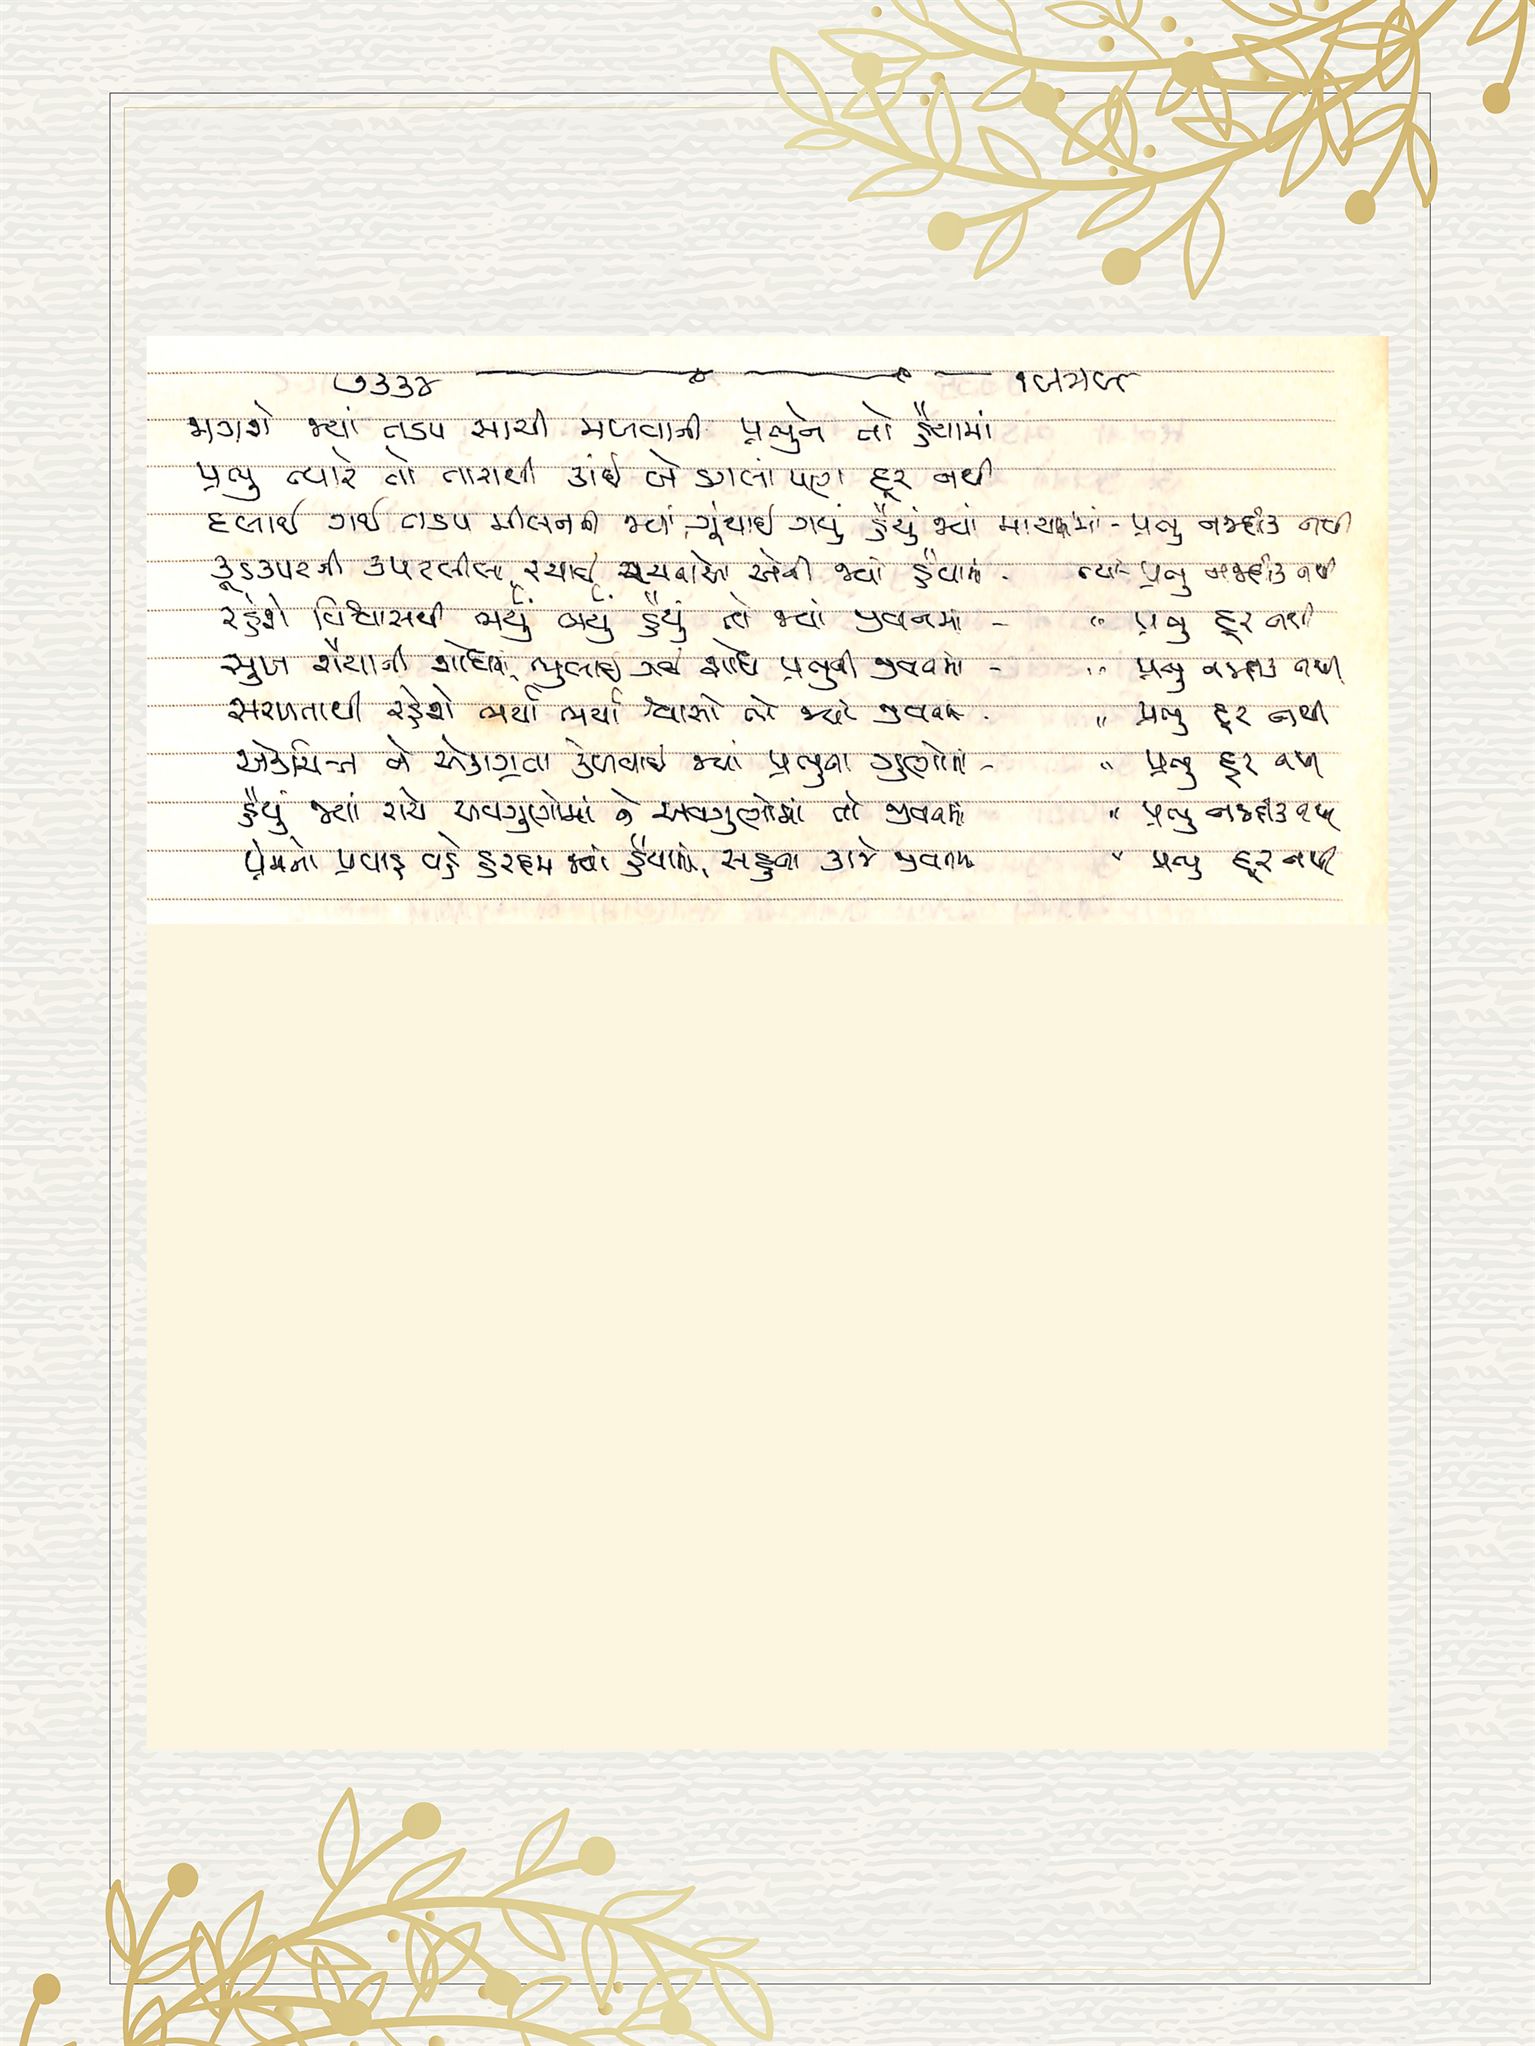 ૭૩૩૪
જાગશે જ્યાં તડપ સાચી મળવાની પ્રભુને તો હૈયામાં
પ્રભુ ત્યારે તો તારાથી કાંઈ બે ડગલાં પણ દૂર નથી
દબાઈ ગઈ તડપ મીલનની જ્યાં, ગૂંથાઈ ગયું હૈયું જ્યાં માયામાં - પ્રભુ નજદીક નથી
ઉપરની રચાઈ એવી જ્યાં હૈયામાં - ત્યાં પ્રભુ નજદીક નથી
રહેશે વિશ્વાસથી ભર્યું ભર્યું હૈયું તો જ્યાં જીવનમાં - " પ્રભુ દૂર નથી
સુખ શૈયાની શોધમાં, ભુલાઈ ગઈ શોધ પ્રભુની જીવનમાં - " પ્રભુ નજદીક નથી
સરળતાથી રહેશે ભર્યા ભર્યા શ્વાસો તો જ્યાં જીવનમાં - " પ્રભુ દૂર નથી
એકચિત્ત ને એકાગ્રતા કેળવાઈ જ્યાં પ્રભુના ગુણોમાં - " પ્રભુ દૂર નથી
હૈયું જ્યાં રાચે અવગુણોમાં ને અવગુણોમાં તો જીવનમાં " પ્રભુ નજદીક નથી
પ્રેમનો પ્રવાહ વહે હરદમ જ્યાં હૈયામાં, સહુના કાજે જીવનમાં " પ્રભુ દૂર નથી